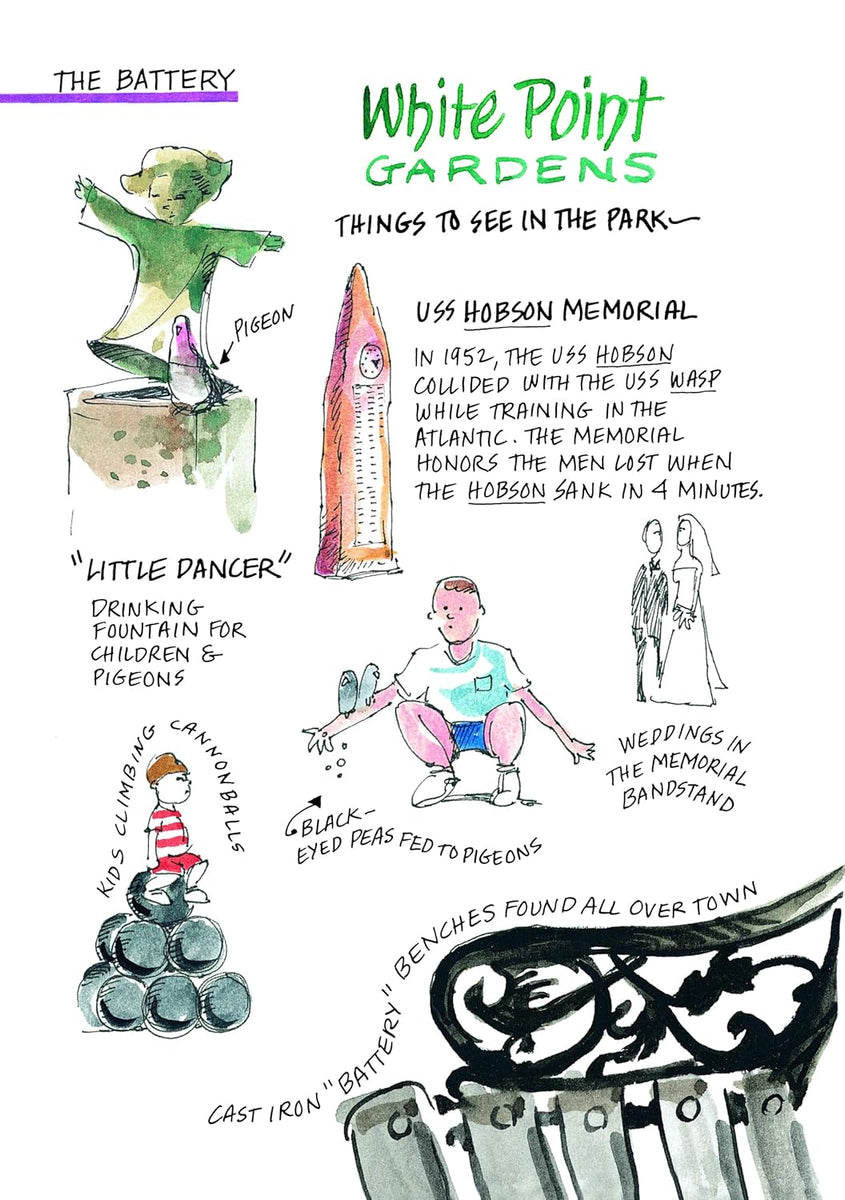 THE BATTERY
White Point
GARDENS
THINGS TO SEE IN THE PARK
PIGEON
USS HOBSON MEMORIAL
IN 1952, THE USS HOBSON
COLLIDED WITH THE USS WASP
WHILE TRAINING IN THE
ATLANTIC. THE MEMORIAL
HONORS THE MEN LOST WHEN
THE HOBSON SANK IN 4 MINUTES.
"LITTLE DANCER"
DRINKING
FOUNTAIN FOR
CHILDREN &
PIGEONS
WEDDINGS IN
THE MEMORIAL
BANDSTAND
KIDS CLIMBING CANNONBALLS
BLACK-
EYED PEAS FED TO PIGEONS
CAST IRON "BATTERY" BENCHES FOUND ALL OVER TOWN